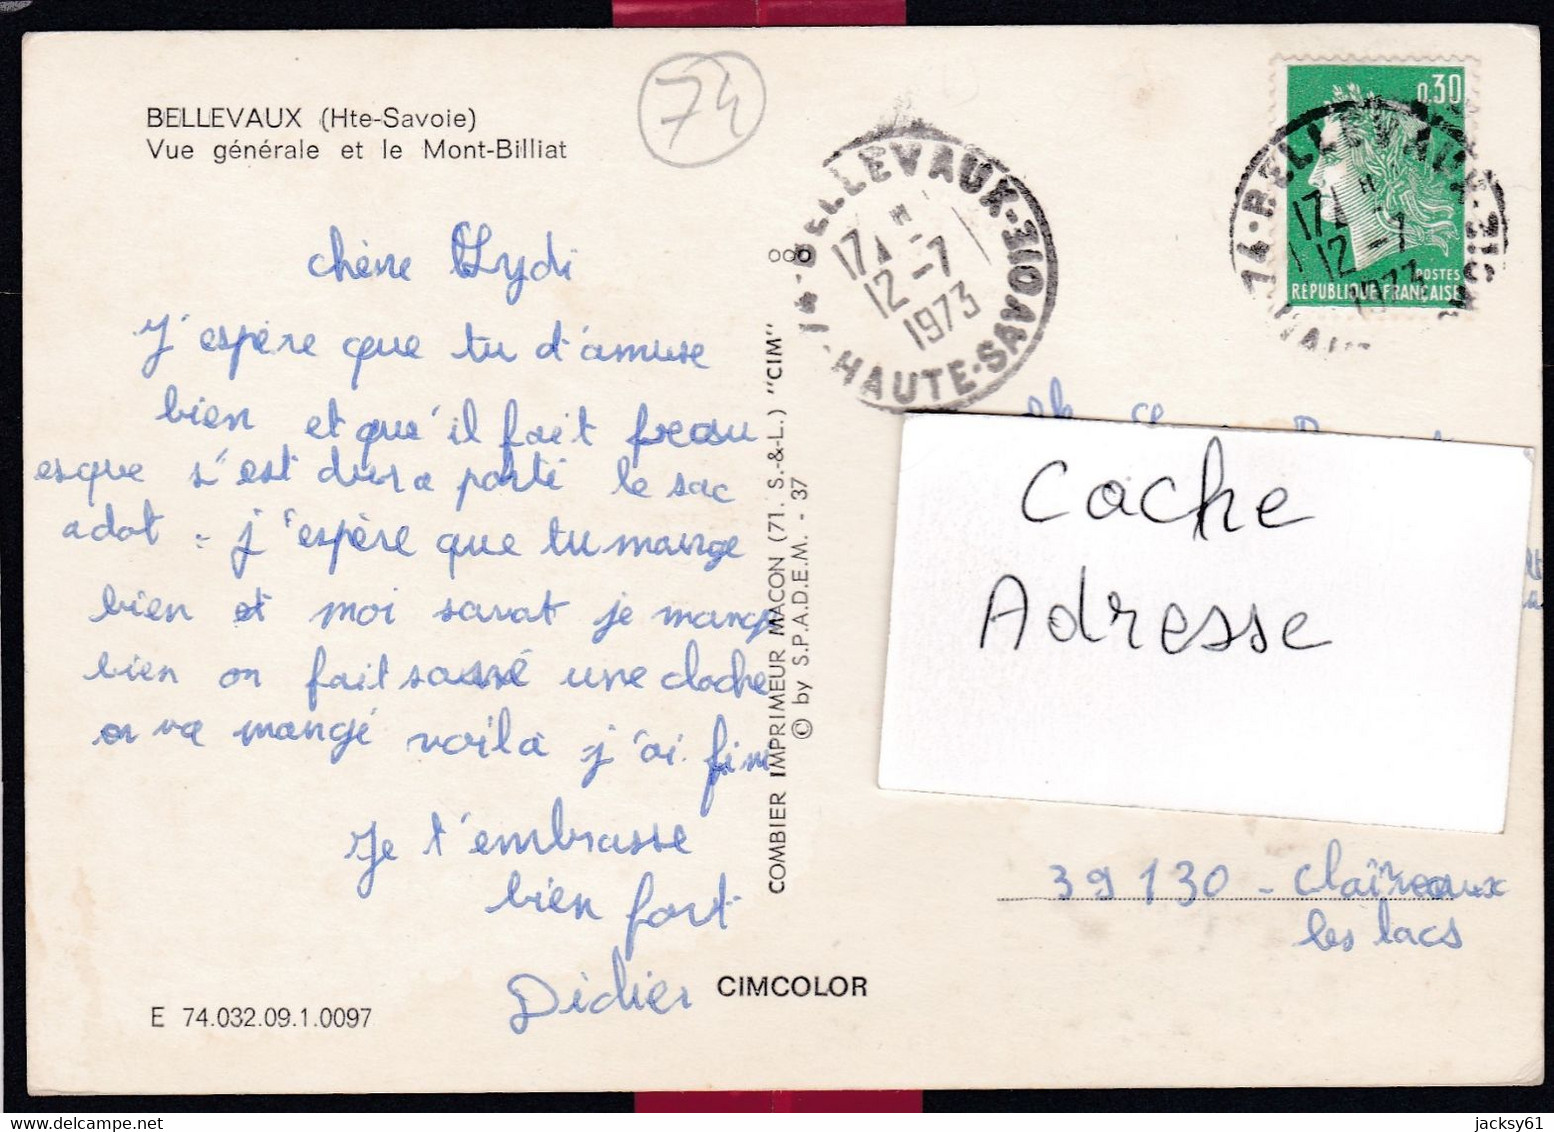 BELLEVAUX (Hte-Savoie)
Vue générale et le Mont-Billiat
74
chère Lydi
J'espère que tu t'amuse
bien et qu'il fait freau
esque s'est dur a porté le sac
adot. j'espère que tu mange
bien et moi savat je mange
bien on fait sonné une cloche
on va mangé voilà j'ai fini
Je t'embrasse
bien fort
Didier
E 74.032.09.1.0097
CIMCOLOR
COMBIER IMPRIMEUR MACON (71. S.-&-L.) "CIM"
© by S.P.A.D.E.M. - 37
74-BELLEVAUX-
HAUTE-SAVOIE
17 H
12 -7
1973
0,30
POSTES
RÉPUBLIQUE FRANÇAISE
74-BELLEVAUX-
17 H
12 -7
1973
Cache
Adresse
39130 - Claireaux
les lacs
jacksy61